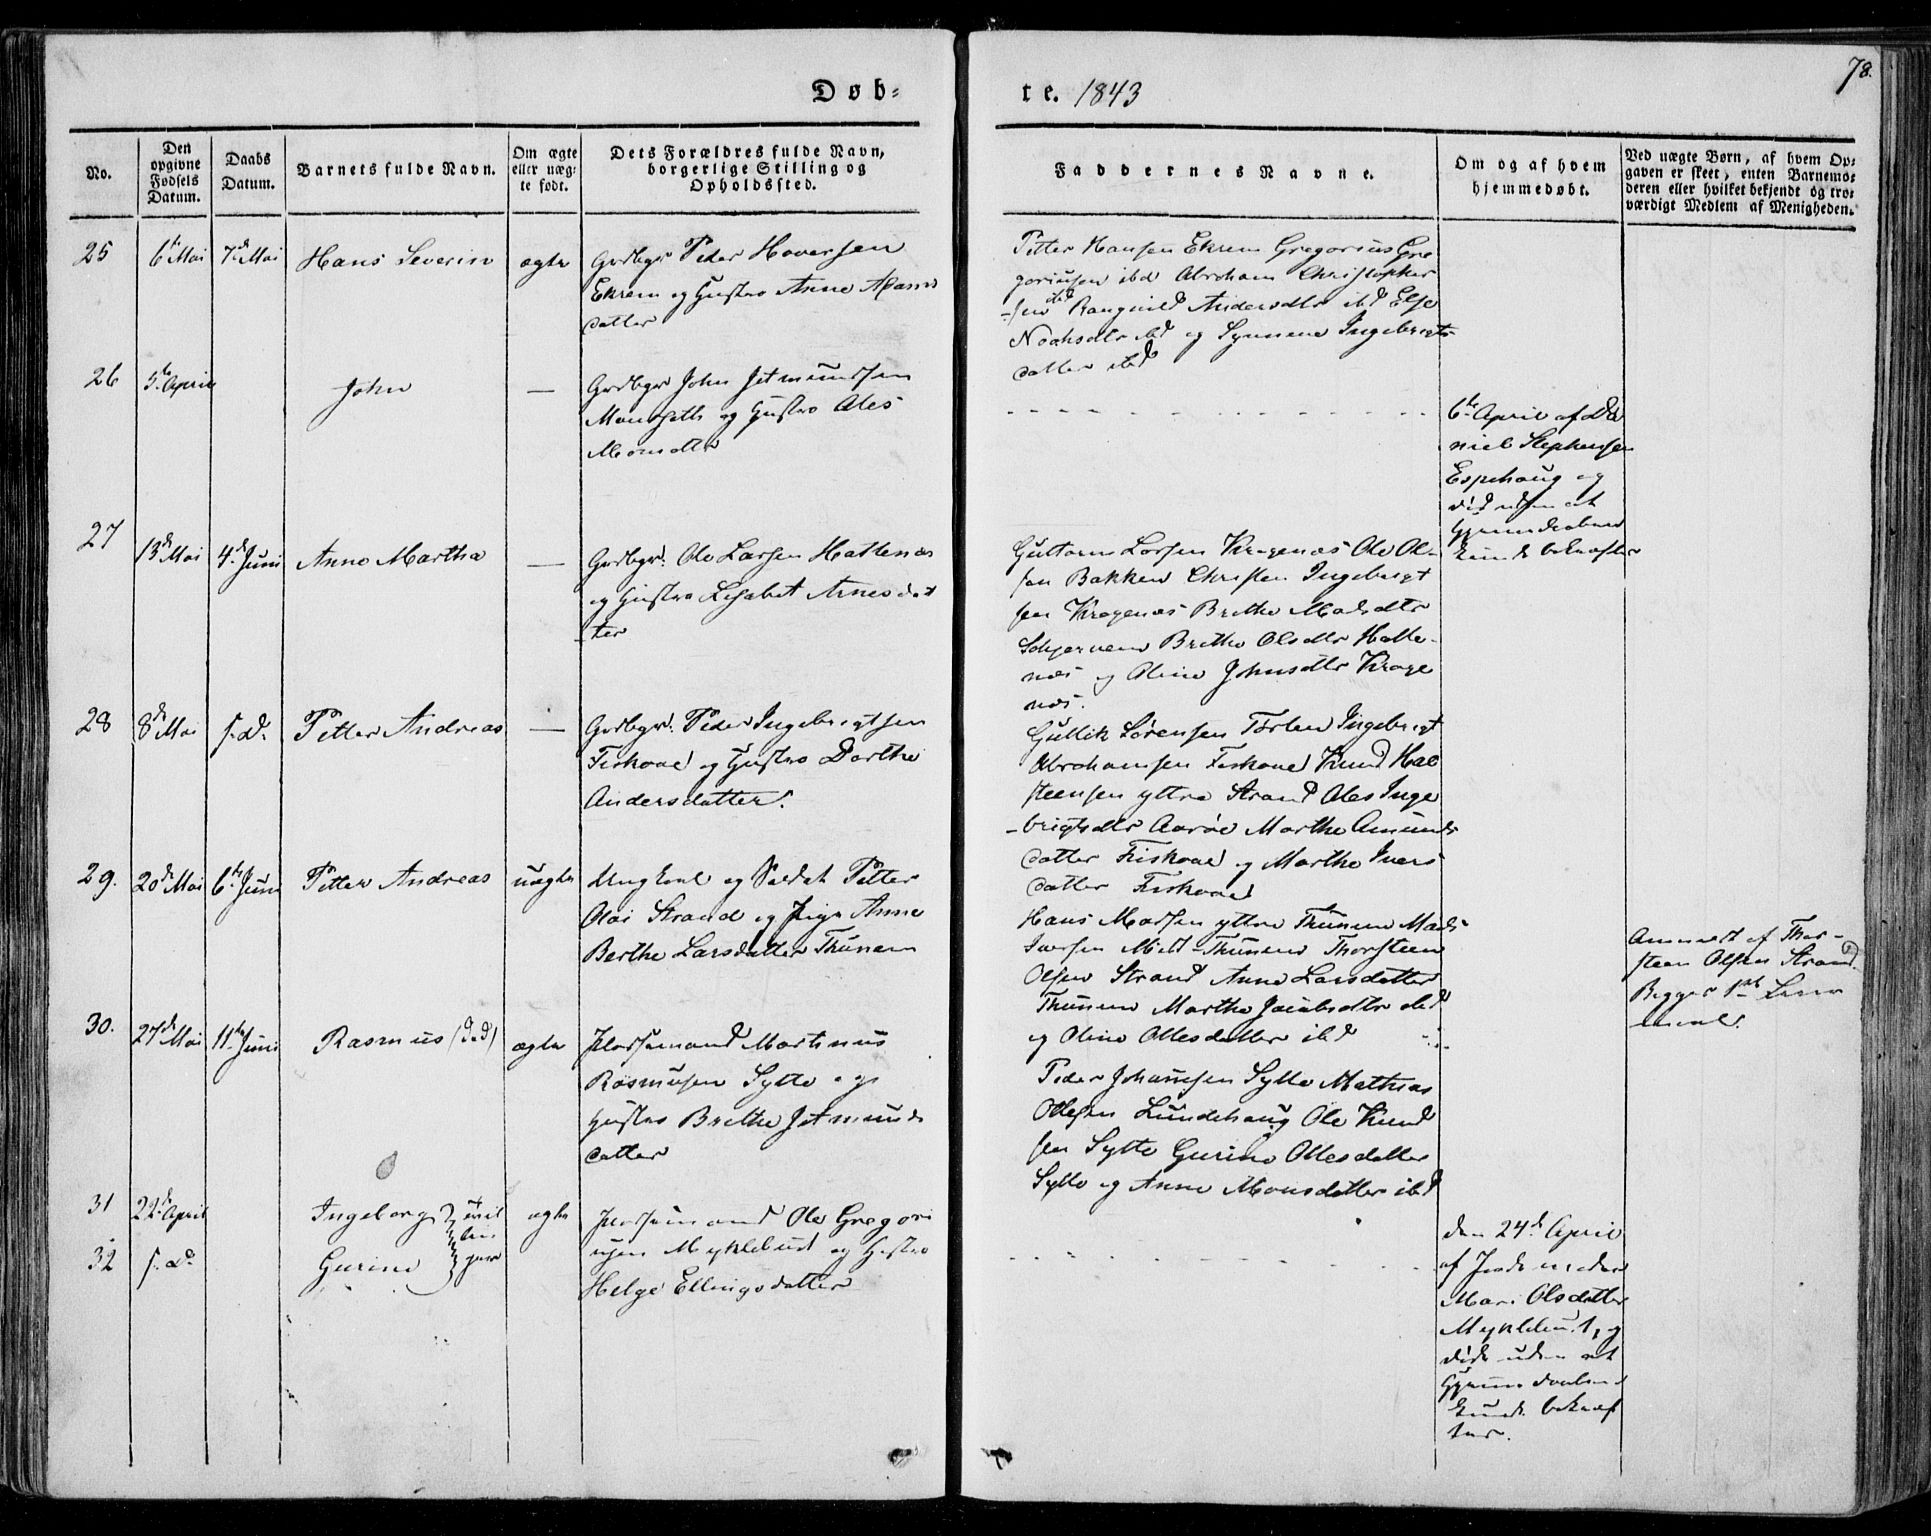 Døb-
te. 1843
78.
No.
Den
opgivne
Fødsels
Datum.
Daabs
Datum.
Barnets fulde Navn.
Om ægte
eller uæg-
te født.
Dets Forældres fulde Navn,
borgerlige Stilling og
Opholdssted.
Faddernes Navne.
Om og af hvem
hjemmedøbt.
Ved uægte Børn, af hvem Op-
gaven er skeet, enten Barnemo-
deren eller hvilket bekjendt og tro-
værdigt Medlem af Menigheden.
25
6te Mai
7de Mai
Hans Severin
ægte
Gvdbgr Peder Hoversen
Ekrem og Hustro Anne Adams
datter
Petter Hansen Ekrem Gregorius Gre
goriusen ibd Abraham Christopher
-sen ibd Rangnild Andersdtr ibd Else
Noahsdtr ibd og Synneve Ingebrigts
datter ibd
26
5te April
John
—
Gvdbgr John Jetmundsen
Mandseth og Hustro Ales
Monsdtr
6te April af Da
niel Stephensen
Espehaug og
død uden at
Hjemmedaaben
kunde bekræftes
27
13de Mai
4de Juni
Anne Martha
—
Gvdbgr. Ole Larsen Hattenæs
og Hustro Lisabet Arnesdat
-ter
Guttorm Larsen Kragenæs Ole Ol-
sen Bakken Christen Ingebrigt
sen Kragenæs Brethe Madsdtr
Brethe Olsdtr Hatte-
næs og Oline Johnsdtr Krage
næs.
28
8de Mai
s. D.
Petter Andreas
—
Gvdbgr. Peder Ingebrigtsen
Fiskaae og Hustro Dorthe
Andersdatter.
Gullik Sørensen Torben Ingebrigt
Abrahamsen Fiskaae Knud Hal
steensen yttre Strand Ales Inge
-brigtsdtr Aarøe Marthe Amunds
datter Fiskaae og Marthe Ivers
datter Fiskaae
29.
20de Mai
6te Juni
Petter Andreas
uægte
Ungkarl og Soldat Petter
Olai Strand og Pige Anne
Berthe Larsdatter Thunem
Hans Madsen yttre Thunem Mads
Iversen Midt-Thunem Thorsteen
Olsen Strand Anne Larsdatter
Thunem Marthe Jacobsdtr ibd
og Oline Ottesdatter ibd
af Thor-
steen Olsen Strand.
Begges 1ste Leier
maal.
30.
27de Mai
11te Juni
Rasmus (død)
ægte
Huusmand Martinus
Rasmusen Sylte og
Hustro Brethe Jetmunds
datter
Peder Johannesen Sylte Mathias
Ottesen Lundehaug Ole Knud
sen Sylte Gurine Ottesdatter
Sylte og Anne Monsdatter ibd
31
22de April
Ingeborg
tvil
lin
ger
ægte
Huusmand Ole Gregori
usen Myklebust og Hustro
Helge Ellingsdatter
32
s. D.
Gurine
den 24de April
af Jordemoder
Mari Olsdatter
Myklebust, og
døde uden at
Hjemmedaaben
kunde bekræf
tes.